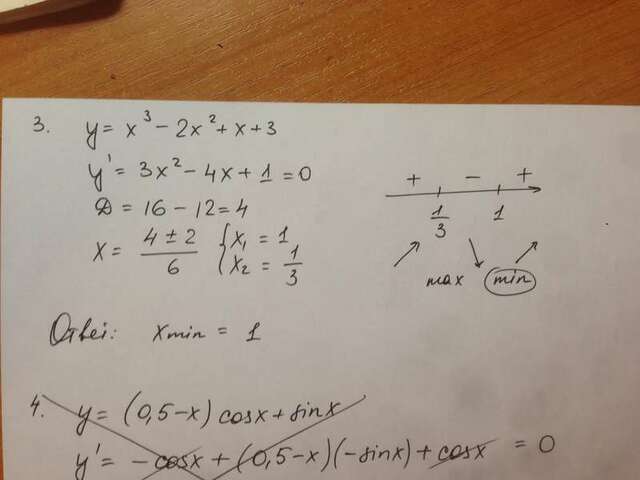 3. y = x³ - 2x² + x + 3
y' = 3x² - 4x + 1 = 0
D = 16 - 12 = 4
x = (4 ± 2)/6 { x₁ = 1
x₂ = 1/3
+ - +
1/3 1
max min
Ответ: xmin = 1
4. y = (0,5-x) cosx + sinx
y' = - cosx + (0,5-x)(-sinx) + cosx = 0